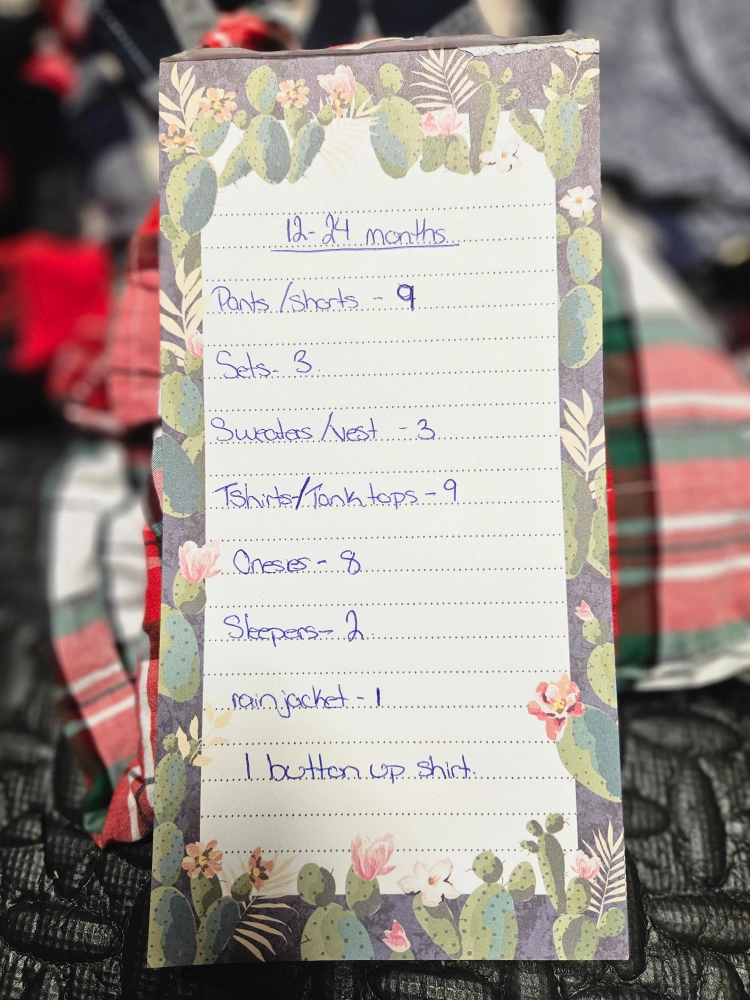 12-24 months
Pants/shorts - 9
Sets- 3
Sweaters/vest - 3
Tshirts/Tank tops - 9
Onesies - 8
Sleepers- 2
rain jacket - 1
1 button up shirt